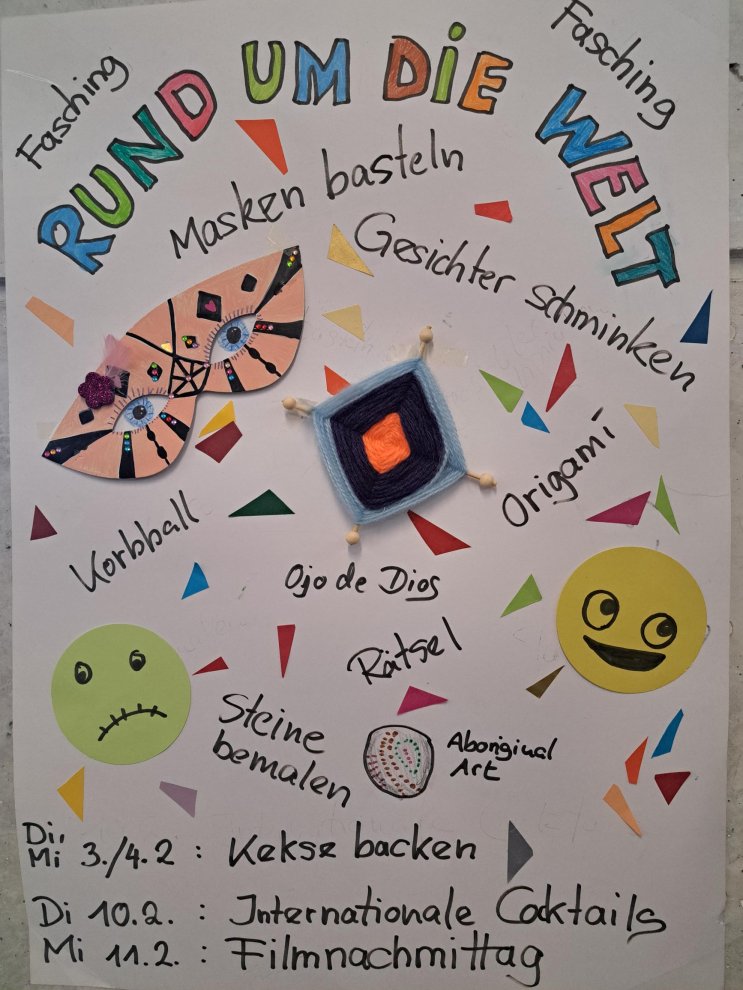 Fasching
RUND UM DIE WELT
Fasching
Masken basteln
Gesichter schminken
Origami
Korbball
Ojo de Dios
Rätsel
Steine
bemalen
Aboriginal
Art
Di,
Mi 3./4.2 : Kekse backen
Di 10.2. : Internationale Cocktails
Mi 11.2. : Filmnachmittag